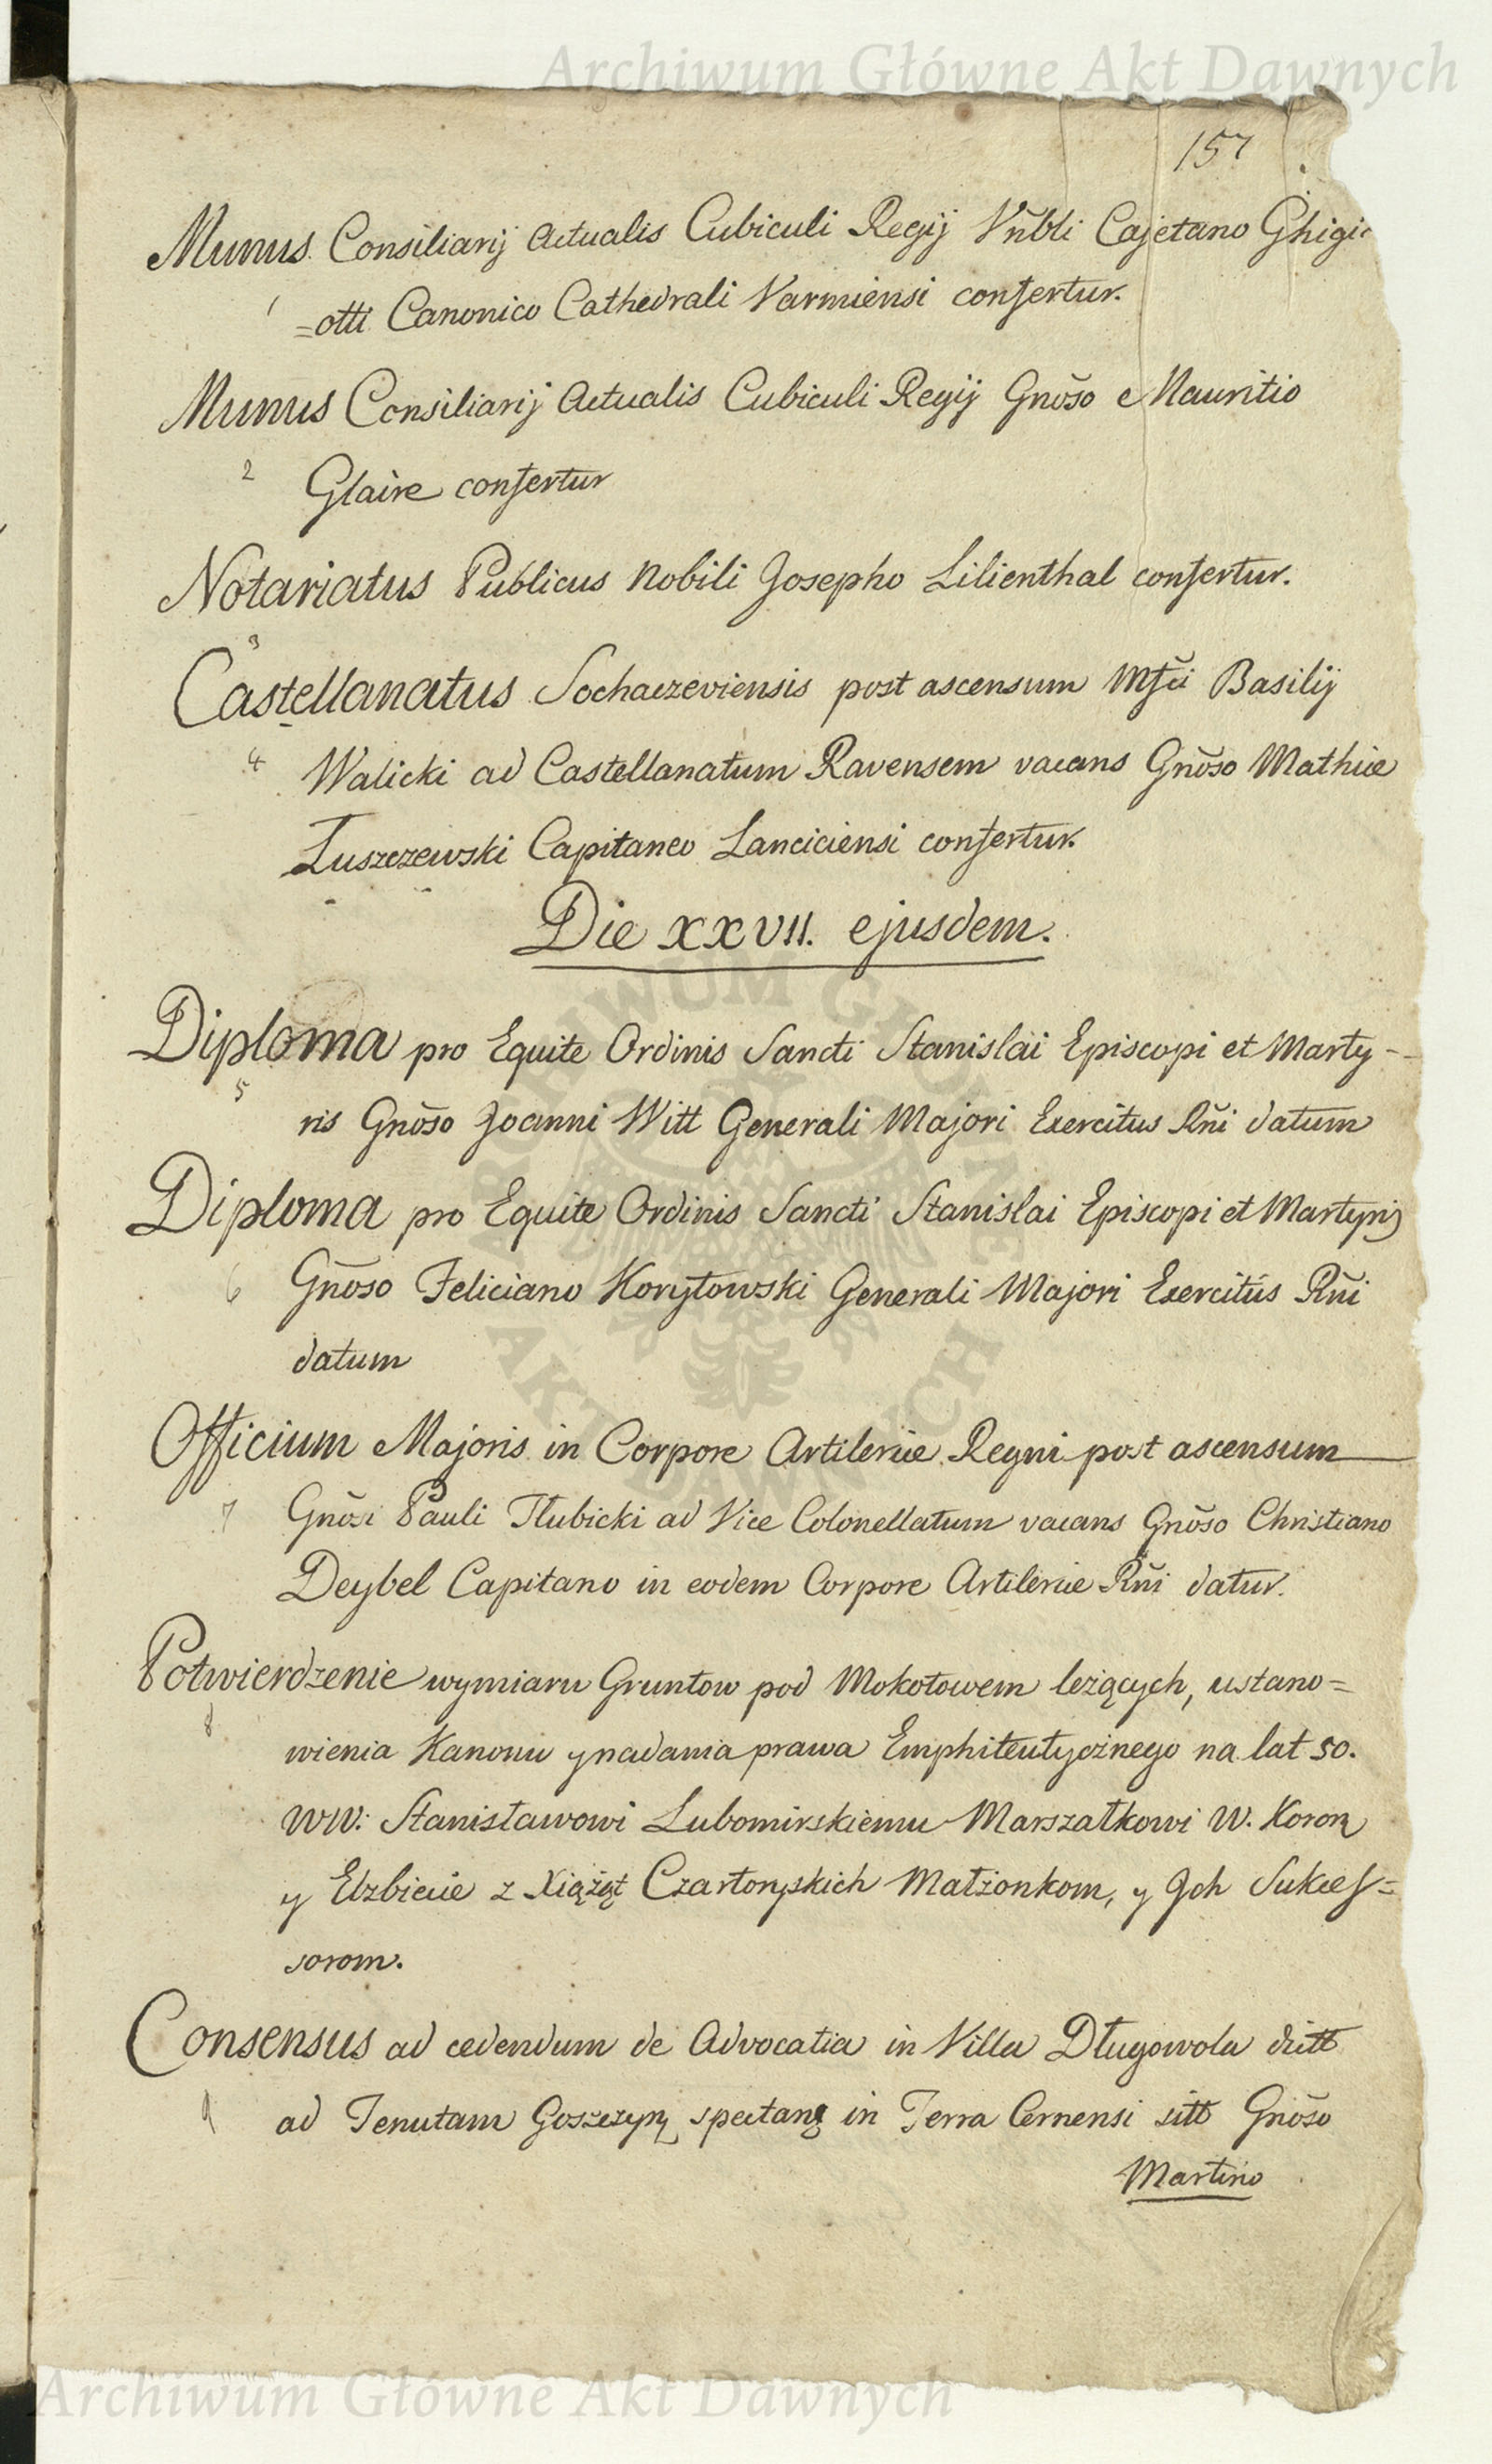 Archiwum Główne Akt Dawnych
157
Munus Consiliarij Actualis Cubiculi Regij Vñbli Cajetano Ghigi
1
=otti Canonico Cathedrali Varmiensi confertur.
Munus Consiliarij Actualis Cubiculi Regij Gnõso Mauritio
2
Glaire confertur
Notariatus Publicus Nobili Josepho Lilienthal confertur.
3
Castellanatus Sochaczeviensis post ascensum Mfci Basilij
4 Walicki ad Castellanatum Ravensem vacans Gnõso Mathiæ
Łuszczewski Capitaneo Lanciciensi confertur.
Die XXVII. ejusdem.
Diploma pro Equite Ordinis Sancti Stanislai Episcopi et Marty-
5
ris Gnõso Joanni Witt Generali Majori Exercitus Rñi datum
Diploma pro Equite Ordinis Sancti Stanislai Episcopi et Martyris
6 Gnõso Feliciano Korytowski Generali Majori Exercitus Rñi
datum
Officium Majoris in Corpore Artileriæ Regni post ascensum
7 Gnõsi Pauli Tłubicki ad Vice Colonellatum vacans Gnõso Christiano
Deybel Capitano in eodem Corpore Artileriæ Rñi datur.
Potwierdzenie wymiaru Gruntow pod Mokotowem leżących, ustano=
8
wienia Kanonu y nadania prawa Emphiteutycżnego na lat 50.
WW: Stanisławowi Lubomirskiemu Marszałkowi W. Koron
y Elzbiecie z Xiążąt Czartoryskich Małżonkom, y Jch Sukces=
sorom.
Consensus ad cedendum de Advocatia in Villa Długowola ditt
9 ad Tenutam Goszczyn spectan in Terra Cernensi sitt Gnõso
Martino
ARCHIWUM GŁÓWNE AKT DAWNYCH
Archiwum Główne Akt Dawnych